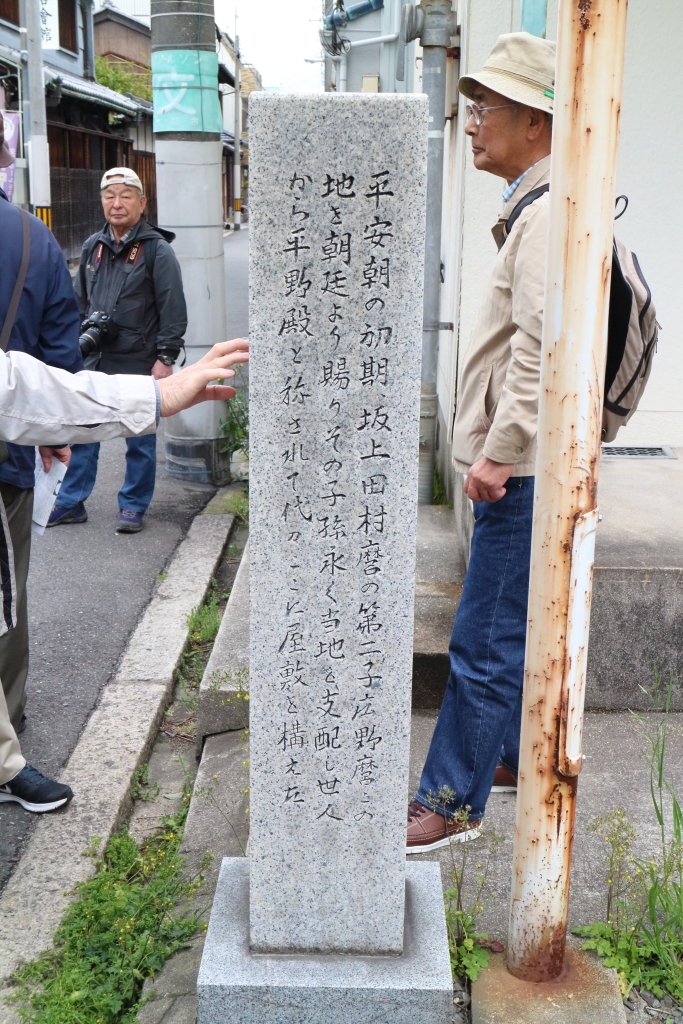 平安朝の初期、坂上田村麿の第二子広野麿この
地を朝廷より賜りその子孫永く当地を支配し世人
から平野殿と称されて代々ここに屋敷を構えた
文